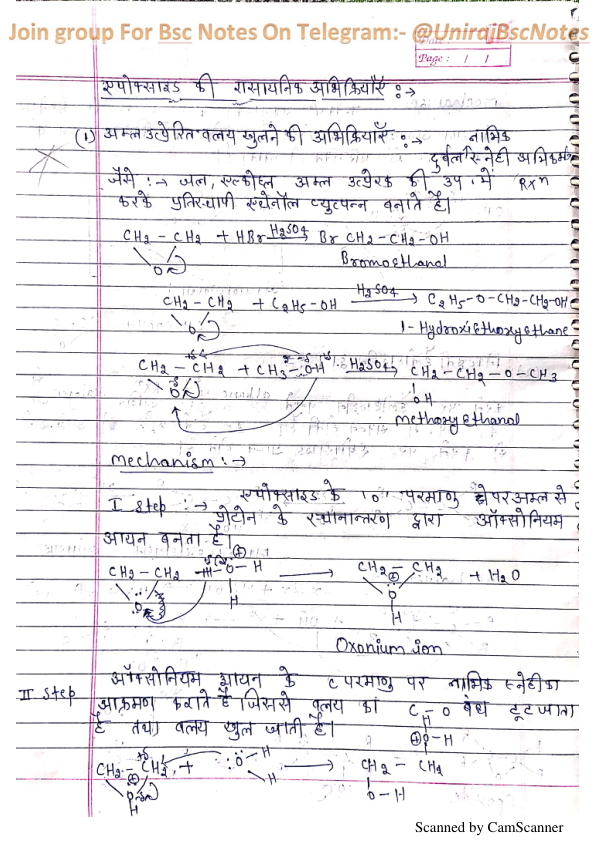 Join group For Bsc Notes On Telegram:- @UnirajBscNotes
Page: / /
एपोक्साइड की रासायनिक अभिक्रियाएँ :→
(1) अम्ल उत्प्रेरित वलय खुलने की अभिक्रियाएँ :→ नाभिक
दुर्बल स्नेही अभिकर्मक
जैसे :→ जल, एल्कोहल अम्ल उत्प्रेरक की उप. में Rxn
करके प्रतिस्थापी एथेनॉल व्युत्पन्न बनाते है।
CH2 – CH2 + HBr H2SO4 → Br CH2-CH2-OH
O
Bromoethanol
CH2 – CH2 + C2H5-OH H2SO4 → C2H5-O-CH2-CH2-OH
O
1-Hydroxiethoxyethane
CH2 – CH2 + CH3-OH H2SO4 → CH2-CH2-O-CH3
O OH
methoxyethanol
mechanism :→
I Step :→ एपोक्साइड के 'O' परमाणु पर अम्ल से
प्रोटोन के स्थानान्तरण द्वारा ऑक्सोनियम
आयन बनता है।
CH2 – CH2 H-O-H → CH2 – CH2 + H2O
O H O
H
Oxonium ion
II Step ऑक्सोनियम आयन के C परमाणु पर नाभिक स्नेही का
आक्रमण कराते है जिससे वलय का C-O बंध टूट जाता
है तथा वलय खुल जाती है।
H
O-H
CH2 – CH2 + O H → CH2 – CH2
O H O-H
H
Scanned by CamScanner